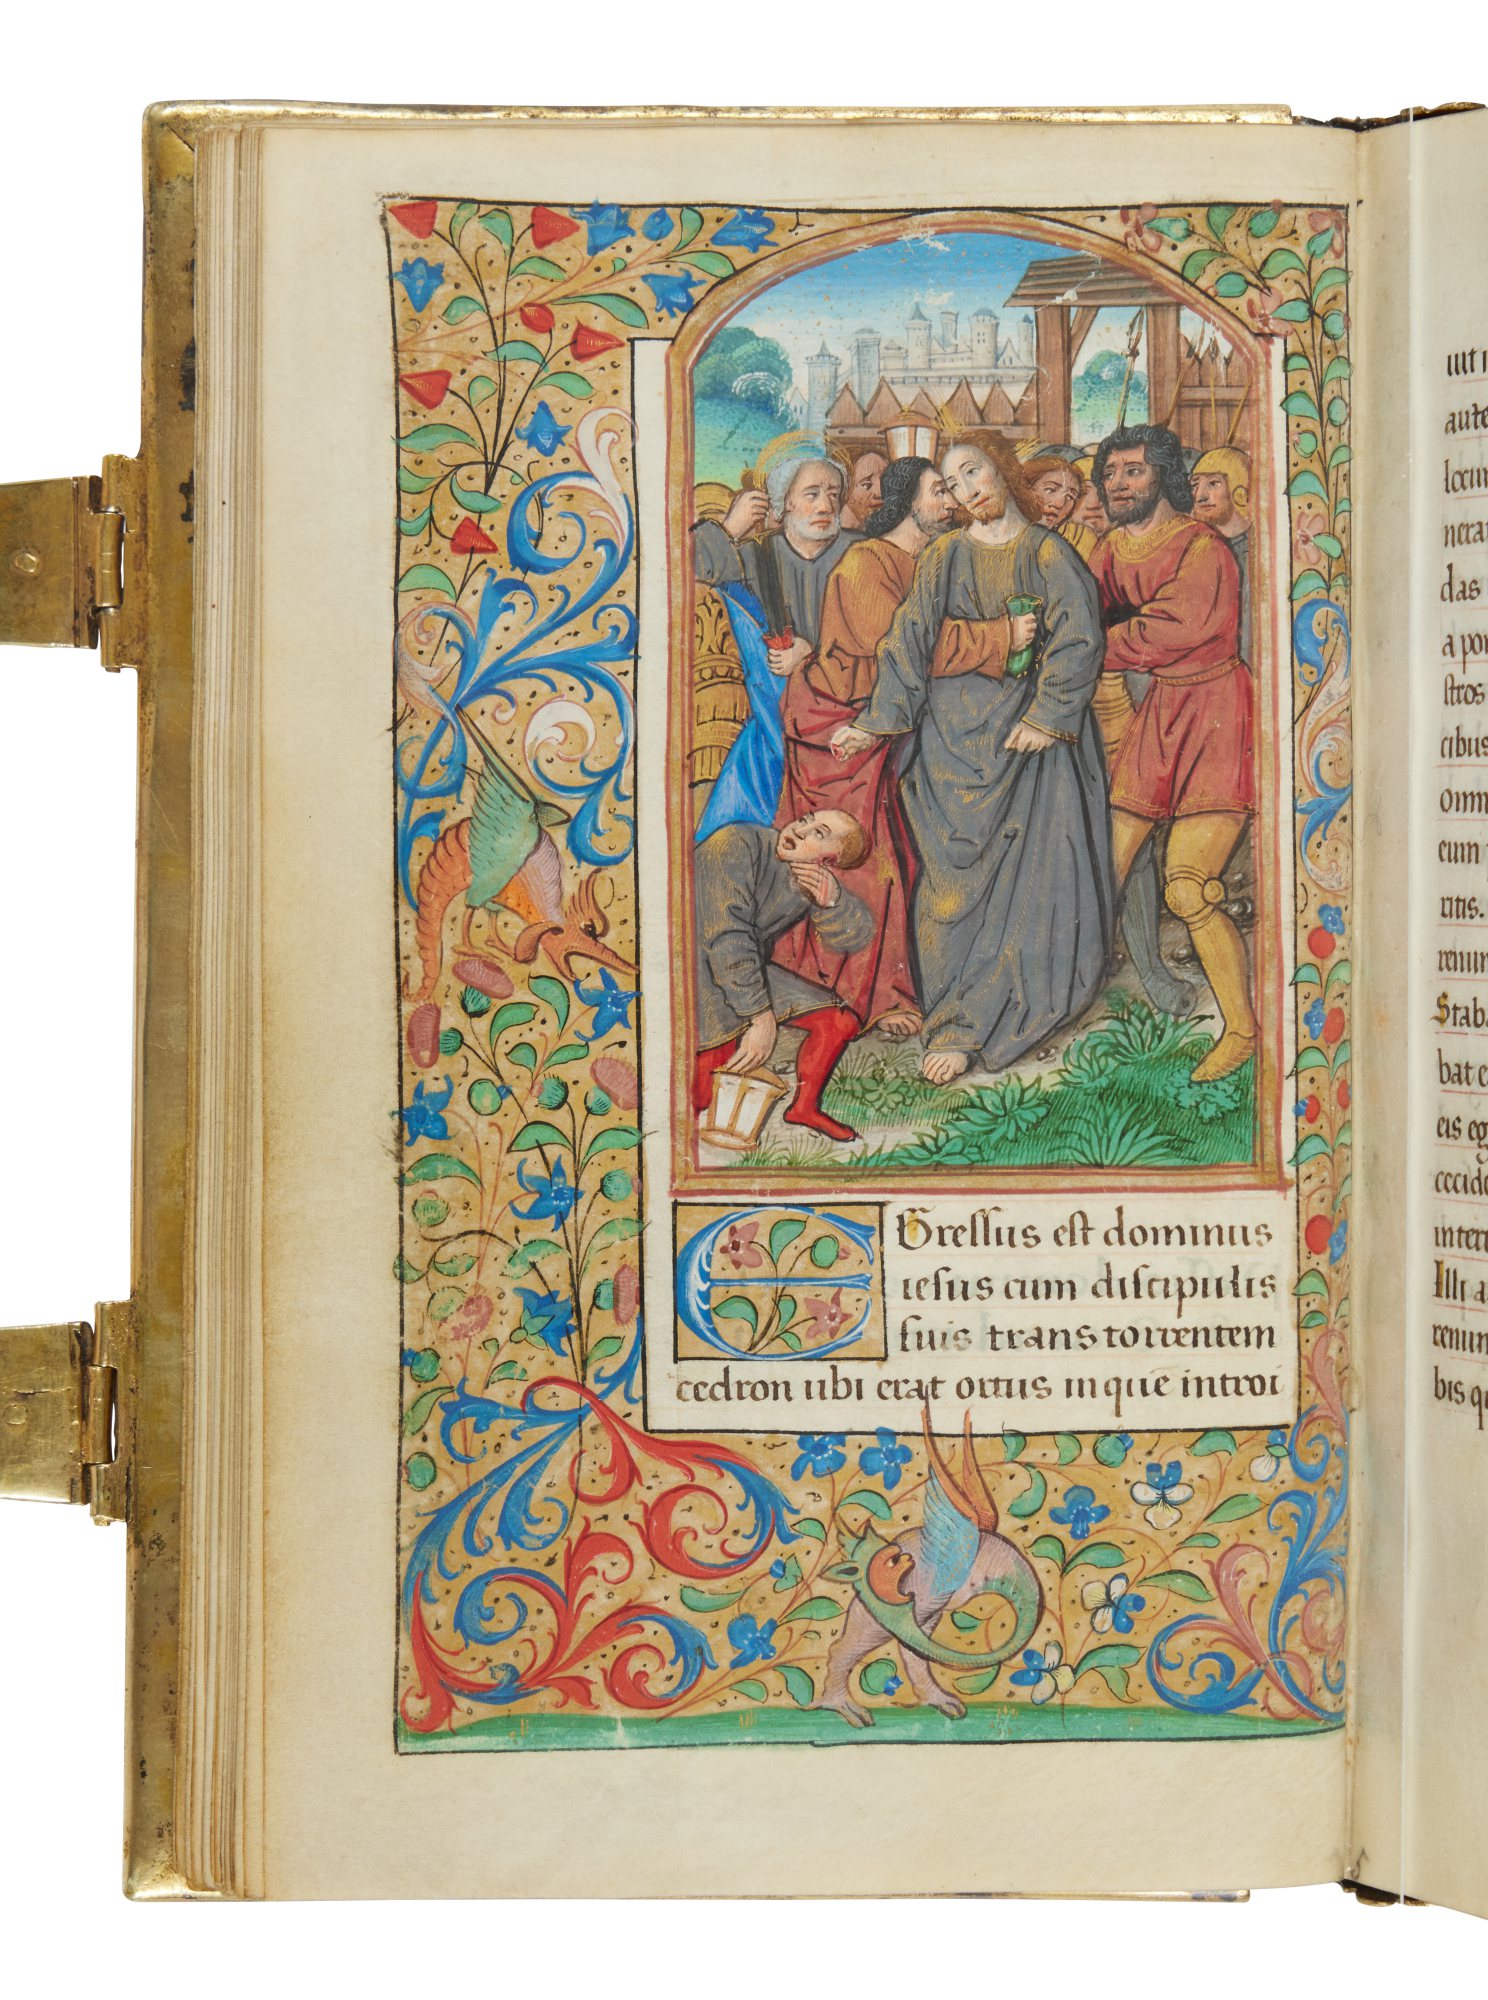 EGressus est dominus
iesus cum discipulis
suis trans torrentem
cedron ubi erat ortus in quē introi
aute
locum
nerat
das
a pon
stros
cibus
omn
eum
ritis.
renun
Staba
bat e
eis eg
cecide
interr
Illi a
renun
bis qu